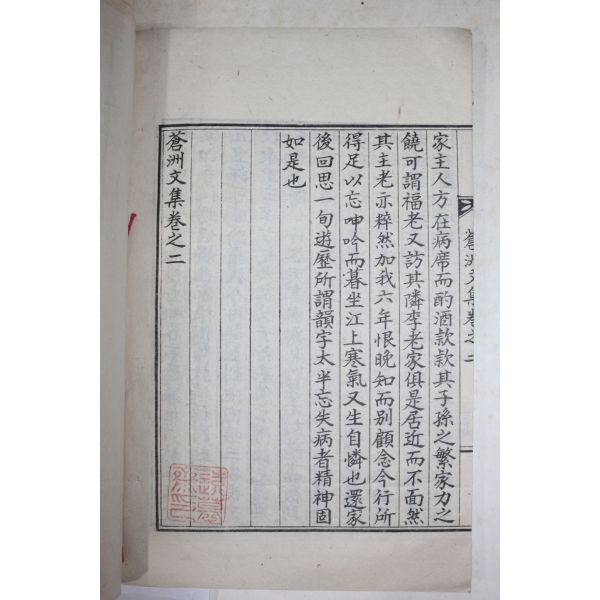 蒼洲文集卷之二
家主人方在病席而酌酒款款其子孫之繁家力之
饒可謂福老又訪其隣李老家俱是居近而不面然
其主老亦粹然加我六年恨晚知而別顧念今行所
得足以忘呻吟而暮坐江上寒氣又生自憐也還家
後回思一旬遊歷所謂韻字太半忘失病者精神固
如是也
蒼洲文集卷之二